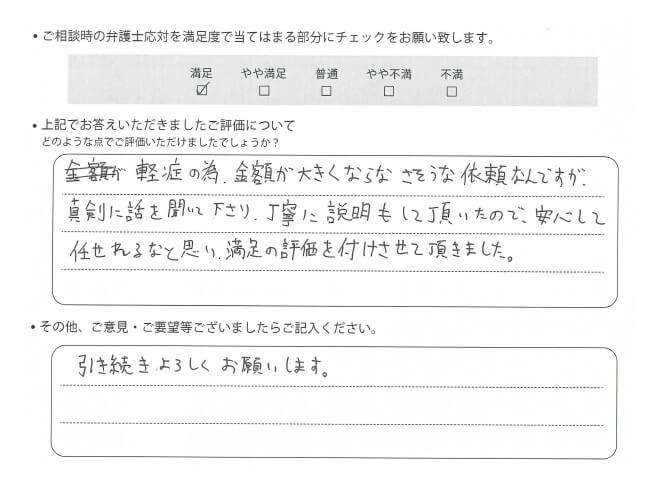 • ご相談時の弁護士応対を満足度で当てはまる部分にチェックをお願い致します。
満足 やや満足 普通 やや不満 不満
☑ ☐ ☐ ☐ ☐
• 上記でお答えいただきましたご評価について
どのような点でご評価いただけましたでしょうか？
金額が 軽症の為、金額が大きくならなさそうな依頼なんですが、
真剣に話を聞いて下さり、丁寧に説明もして頂いたので、安心して
任せれるなと思い、満足の評価を付けさせて頂きました。
• その他、ご意見・ご要望等ございましたらご記入ください。
引き続きよろしくお願いします。